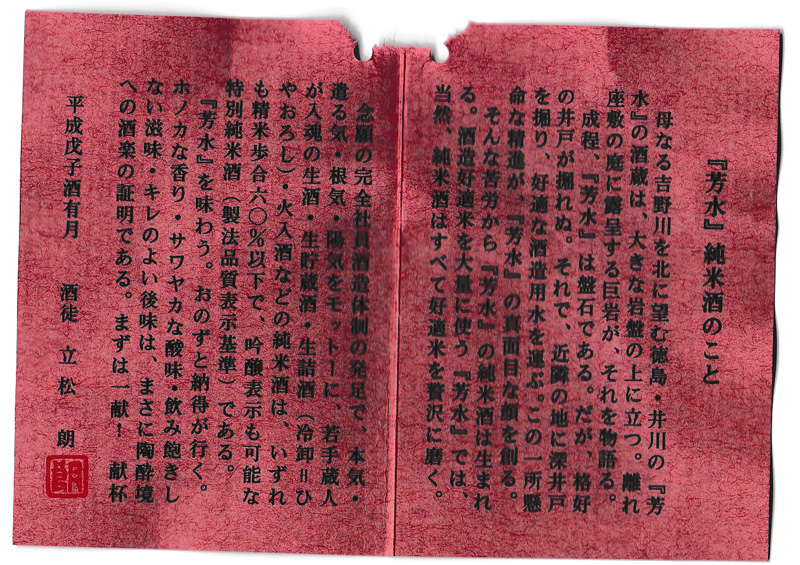 『芳水』純米酒のこと
母なる吉野川を北に望む徳島・井川の『芳
水』の酒蔵は、大きな岩盤の上に立つ。離れ
座敷の庭に露呈する巨岩が、それを物語る。
成程、『芳水』は盤石である。だが、格好
の井戸が掘れぬ。それで、近隣の地に深井戸
を掘り、好適な酒造用水を運ぶ。この一所懸
命な精進が、『芳水』の真面目な顔を創る。
そんな苦労から『芳水』の純米酒は生まれ
る。酒造好適米を大量に使う『芳水』では、
当然、純米酒はすべて好適米を贅沢に磨く。
念願の完全社員酒造体制の発足で、本気・
遣る気・根気・陽気をモットーに、若手蔵人
が入魂の生酒・生貯蔵酒・生詰酒（冷卸＝ひ
やおろし）・火入酒などの純米酒は、いずれ
も精米歩合六〇％以下で、吟醸表示も可能な
特別純米酒（製法品質表示基準）である。
『芳水』を味わう。おのずと納得が行く。
ホノカな香り・サワヤカな酸味・飲み飽きし
ない滋味・キレのよい後味は、まさに陶酔境
への酒楽の証明である。まずは一献！　献杯
平成戊子酒有月　酒徒　立松一朗
朗